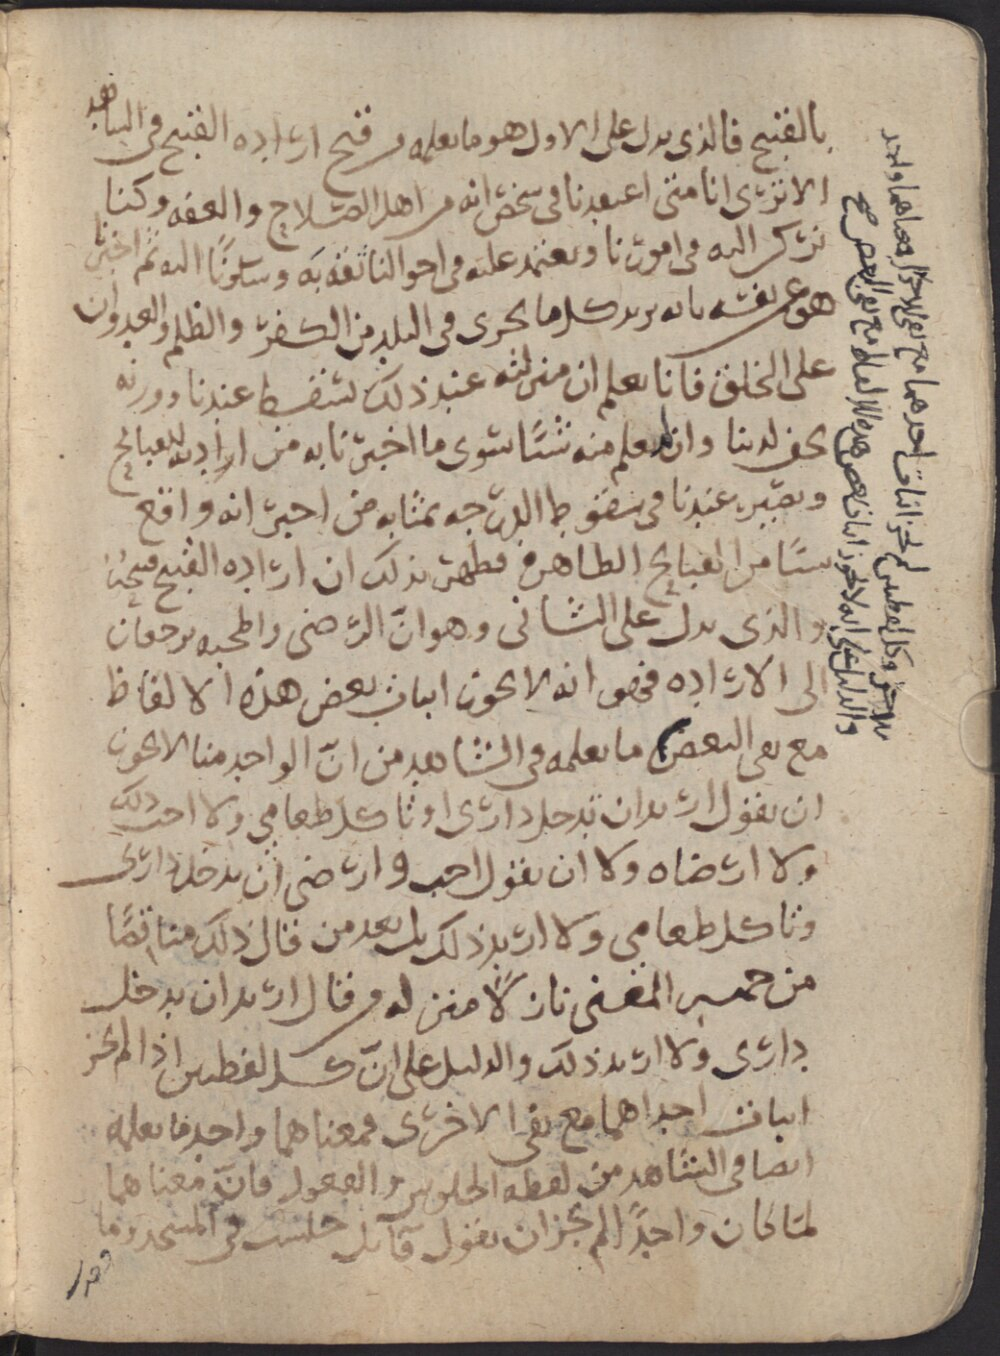 بالقبيح فالذي يدل على الاول هو ما نعلمه من قبح ارادة القبيح في الشاهد
الا ترى انا متى اعتقدنا في شخص انه من اهل الصلاح والعفة وكنا
نركن اليه في امورنا ونعتمد عليه في احوالنا ثقة به وسكونًا اليه ثم اخبرنا
هو عن نفسه بانه يريد كلما يجري في البلد من الكفر والظلم والعدوان
على الخلق فانا نعلم ان منزلته عند ذلك تسقط عندنا ووزنه
يخف لدينا وان لم نعلم منه شيئًا سوى ما اخبرنا به من ارادته للقبائح
ويصير عندنا في سقوط الدرجة بمثابة من اخبر انه واقع
شيئًا من القبائح الظاهرة فظهر بذلك ان ارادة القبيح قبيحة
والذي يدل على الثاني وهو انّ الرضى والمحبة يرجعان
الى الارادة فهو انه لا يجوز اثبات بعض هذه الالفاظ
مع نفي البعض ما نعلمه في الشاهد من انّ الواحد منا لا يجوز
ان يقول اريد ان تدخل داري او تاكل طعامي ولا احب ذلك
ولا ارضاه ولا ان يقول احب وارضى ان تدخل داري
وتاكل طعامي ولا اريد ذلك بل يعد من قال ذلك مناقضًا
من حيث المعنى نازلًا منزلة من قال اريد ان يدخل
داري ولا اريد ذلك والدليل على انّ كل لفظين اذا لم يجز
اثبات احداهما مع نفي الاخرى فمعناهما واحد ما نعلمه
ايضا في الشاهد من لفظة الجلوس والقعود فانّ معناهما
لمّا كان واحدًا لم يجز ان يقول قائل جلست في المسجد وما
والدليل على انه لا يجوز اثبات بعض هذه الالفاظ مع نفي البعض صح
وكل لفظين لم يجز اثبات احدهما مع نفي الاخر فمعناهما واحد